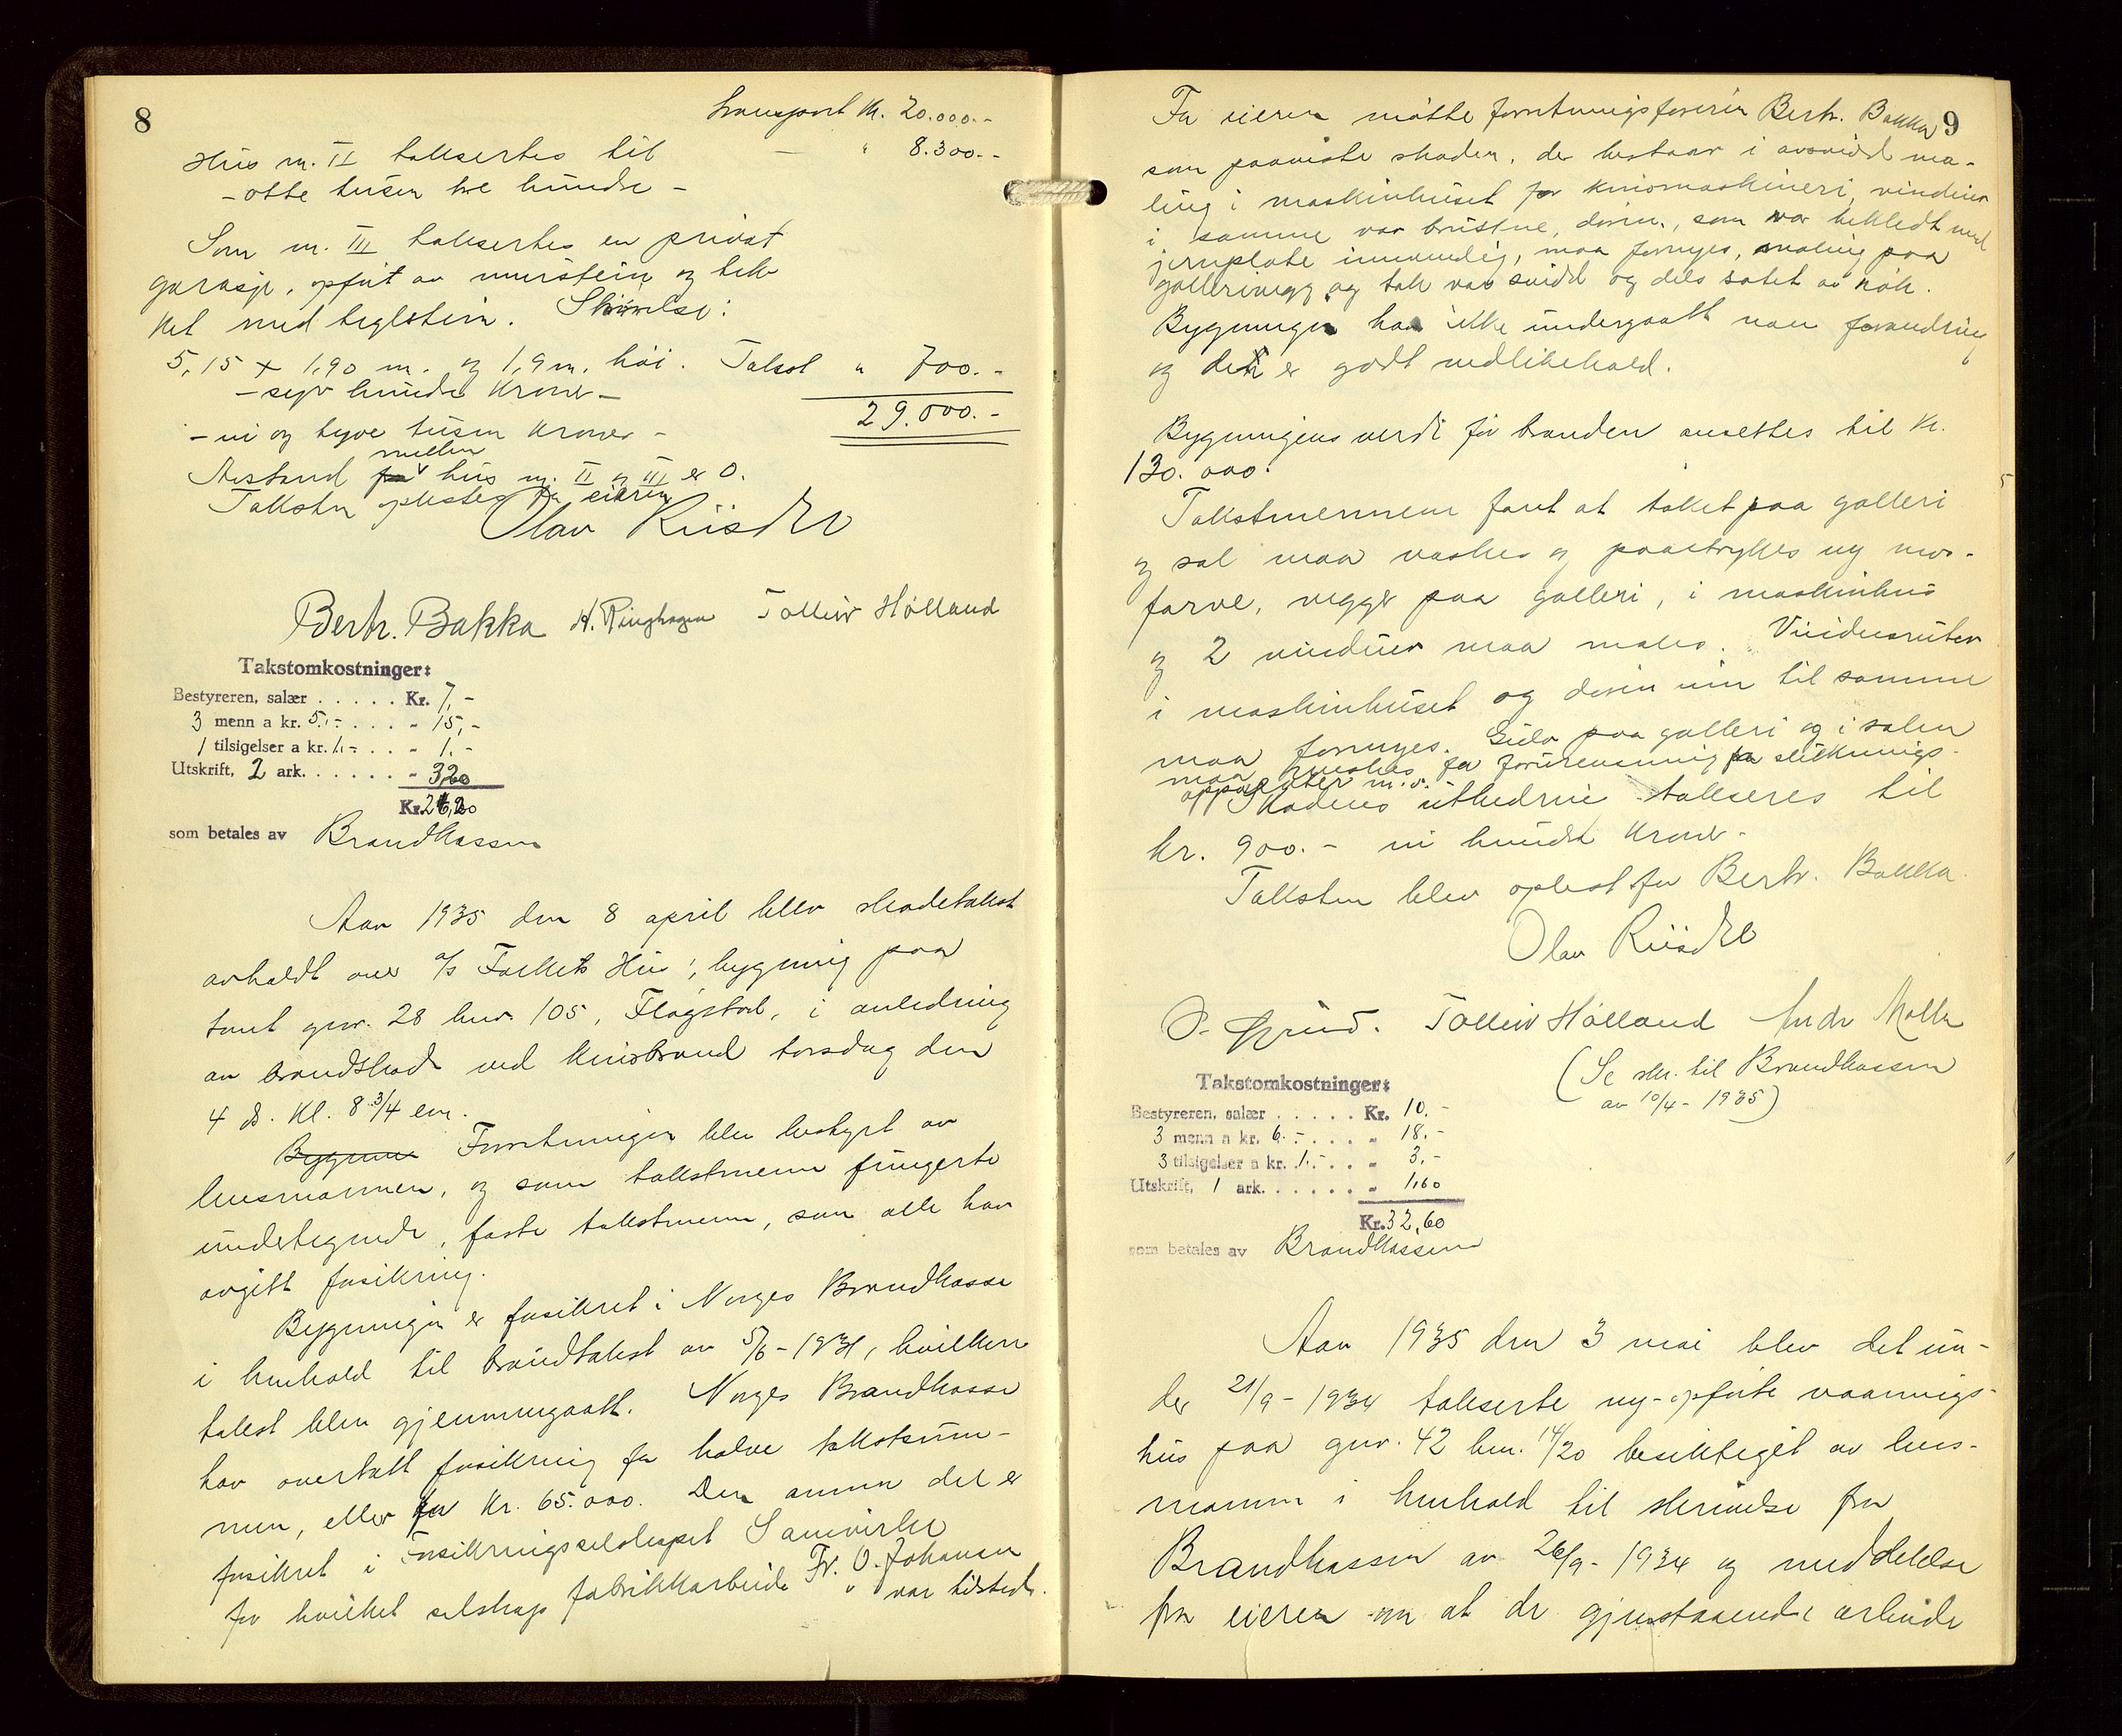 8
Transport Kr. 20.000.-
Hus nr. II taksertes til — " 8.300.-
- otte tusen tre hundre -
Som nr. III taksertes en privat
garasje, opført av murstein og tek-
ket med teglstein. Størrelse:
5,15 x 1,90 m. og 1,9 m. høi. Takst " 700.-
- syv hundre kroner -
29.000.-
- ni og tyve tusen kroner -
mellem
Avstand hus nr. II og III er 0.
Taksten oplæstes for eieren
Olav Riisdel
Bertr. Bakka H. Ringhagen Tolleiv Holland
Takstomkostninger:
Bestyreren, salær . . . . . Kr. 7,-
3 menn a kr. 5.- . . . . " 15,-
1 tilsigelser a kr. 1.- . . " 1.-
Utskrift, 2 ark. . . . . . . " 3,20
Kr. 26,20
som betales av Brandkassen
Aar 1935 den 8 april blev skadetakst
avholdt over a/s Folkets Hus', bygning paa
tomt gnr. 28 bnr. 105, Flogstad, i anledning
av brandskade ved kinobrand torsdag den
4 ds. kl. 8 3/4 em.
Bygnin Forretningen blev bestyrt av
lensmannen, og som takstmenn fungerte
undertegnede, faste takstmenn, som alle har
avgitt forsikring.
Bygningen er forsikret i Norges Brandkasse
i henhold til brandtakst av 5/6 - 1931, hvilken
takst blev gjennemgaatt. Norges Brandkasse
har overtatt forsikring for halve takstsum-
men, eller for kr. 65.000. Den annen del er
forsikret i Forsikringsselskapet Samvirke
for hvilket selskap fabrikkarbeide Fr. O. Johansen
var tilstede.
9
For eieren møtte forretningsføreren Bertr. Bakka
som paaviste skaden, der bestaar i avsvidd ma-
ling i maskinhuset for kinomaskineri, vinduer
i samme var brustne, døren, som var bekledt med
jernplate innvendig, maa fornyes, maling paa
gallerivegg og tak var svidd og dels sotet av røk.
Bygningen har ikke undergaatt noen forandring
og den er godt vedlikehold.
Bygningens verdi før branden ansettes til kr.
130.000.
Takstmennene fant at taket paa galleri
og sal maa vaskes og paastrykkes ny mur-
farve, vegger paa galleri, i maskinhus
og 2 vinduer maa males. Vindusruter
i maskinhuset og døren inn til samme
maa fornyes. Gulv paa galleri og i salen
maa renskes for forurensning fra sluknings-
apparater m.v.
Skadens utbedring takseres til
kr. 900.- ni hundre kroner.
Taksten blev oplest for Bertr. Bakka.
Olav Riisdel
Tolleiv Holland Andr Molle
(Se skr. til Brandkassen
av 10/4 - 1935)
Takstomkostninger:
Bestyreren, salær . . . . . Kr. 10.-
3 menn a kr. 6.- . . . . " 18.-
3 tilsigelser a kr. 1.- . . " 3,-
Utskrift, 1 ark. . . . . . . " 1,60
Kr. 32,60
som betales av Brandkassen
Aar 1935 den 3 mai blev det un-
der 21/9 - 1934 takserte ny-opførte vaanings-
hus paa gnr. 42 bnr. 14/20 besiktiget av lens-
mannen i henhold til skrivelse fra
Brandkassen av 26/9 - 1934 og meddelelse
fra eieren om at de gjenstaaende arbeide